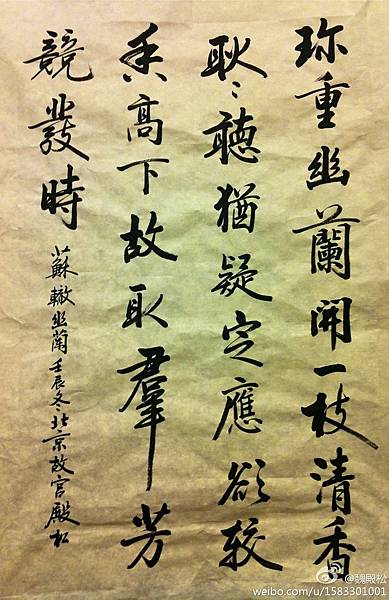 珎重幽蘭開一枝清香
耿〻聽猶疑定應欲較
香高下故取羣芳
競發時
蘇轍幽蘭壬辰冬北京故宮殿松
@魏殿松
weibo.com/u/1583301001